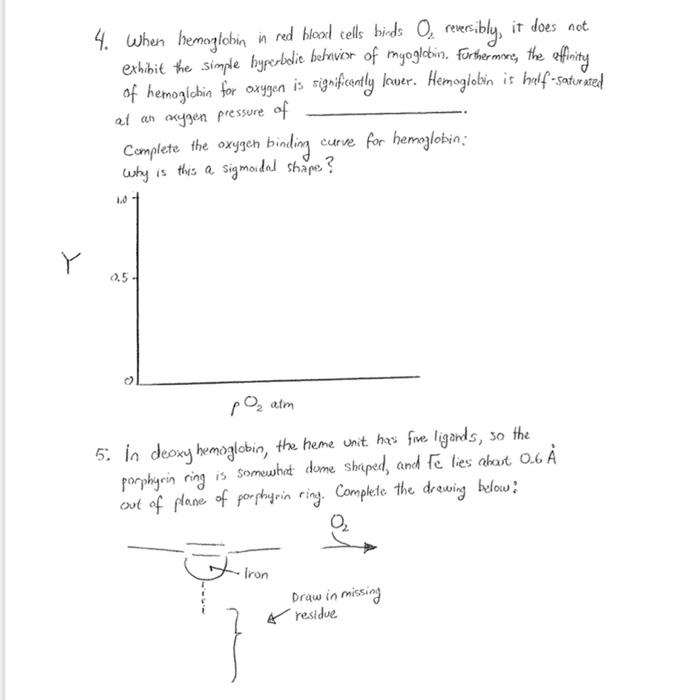 4. When hemoglobin in red blood cells binds O₂ reversibly, it does not
exhibit the simple hyperbolic behavior of myoglobin. Furthermore, the affinity
of hemoglobin for oxygen is significantly lower. Hemoglobin is half-saturated
at an oxygen pressure of ________.
Complete the oxygen binding curve for hemoglobin:
Why is this a sigmoidal shape?
1.0
Y
0.5
0
pO₂ atm
5. In deoxyhemoglobin, the heme unit has five ligands, so the
porphyrin ring is somewhat dome shaped, and Fe lies about 0.6 Å
out of plane of porphyrin ring. Complete the drawing below:
O₂
Iron
Draw in missing
residue